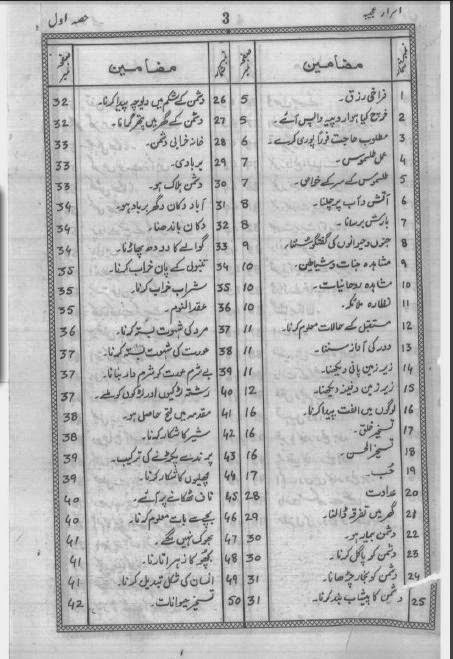 اسرار عجیبہ 3 حصہ اول
نمبر شمار مضامین صفحہ نمبر
1 فراخی رزق۔ 5
2 خرچ کیا ہوا روپیہ واپس آئے۔ 5
3 مطلوب حاجت فوراً پوری کرے 6
4 عمل طلسموس۔ 7
5 طلسموس کے سر کے خواص۔ 7
6 آتش و آب پر چلنا۔ 8
7 بارش برسانا۔ 8
8 جنوں و حیوانوں کی گفتگو سننا۔ 9
9 مشاہدہ جنات و شیاطین۔ 10
10 مشاہدہ روحانیات۔ 10
11 نظارہ ملائکہ۔ 10
12 مستقبل کے حالات معلوم کرنا۔ 11
13 دور کی آواز سننا۔ 11
14 زیر زمین پانی دیکھنا۔ 11
15 زیر زمین دفینہ دیکھنا۔ 12
16 لوگوں میں الفت پیدا کرنا۔ 16
17 تسخیر خلق۔ 16
18 تسخیر الحسن۔ 16
19 حُب۔ 17
20 عداوت 28
21 گھر میں تفرقہ ڈالنا۔ 29
22 دشمن بیمار ہو۔ 30
23 دشمن کو پاگل کرنا۔ 30
24 دشمن کو بخار چڑھانا۔ 31
25 دشمن کا پیشاب بند کرنا۔ 31
نمبر شمار مضامین صفحہ نمبر
26 دشمن کے شکم میں پیدا کرنا۔ 32
27 دشمن کے گھر میں پتھر گرانا۔ 32
28 خانہ خرابی دشمن۔ 33
29 بربادی۔ 33
30 دشمن ہلاک ہو۔ 33
31 آباد دکان و گھر برباد ہو۔ 34
32 دکان باندھنا۔ 34
33 گوالے کا دودھ پھاڑنا۔ 34
34 تنبول کے پان خراب کرنا۔ 35
35 شراب خراب کرنا۔ 35
36 عقد النوم۔ 35
37 مرد کی شہوت بستہ کرنا۔ 36
38 عورت کی شہوت بستہ کرنا۔ 37
39 بے شرم عورت کو شرم دار بنانا۔ 37
40 رشتہ لڑکیوں اور لڑکوں کو ملے۔ 37
41 مقدمہ میں فتح حاصل ہو۔ 38
42 شیر کا شکار کرنا۔ 38
43 پرندے پکڑنے کی ترکیب۔ 39
44 مچھلیوں کا شکار کرنا۔ 39
45 ناف ٹھکانے پر آئے۔ 40
46 بچے سے بات معلوم کرنا۔ 40
47 بھوک نہیں لگے۔ 41
48 بچھو کا زہر اتارنا۔ 41
49 انسان کی شکل تبدیل کرنا۔ 41
50 تسخیر حیوانات۔ 42